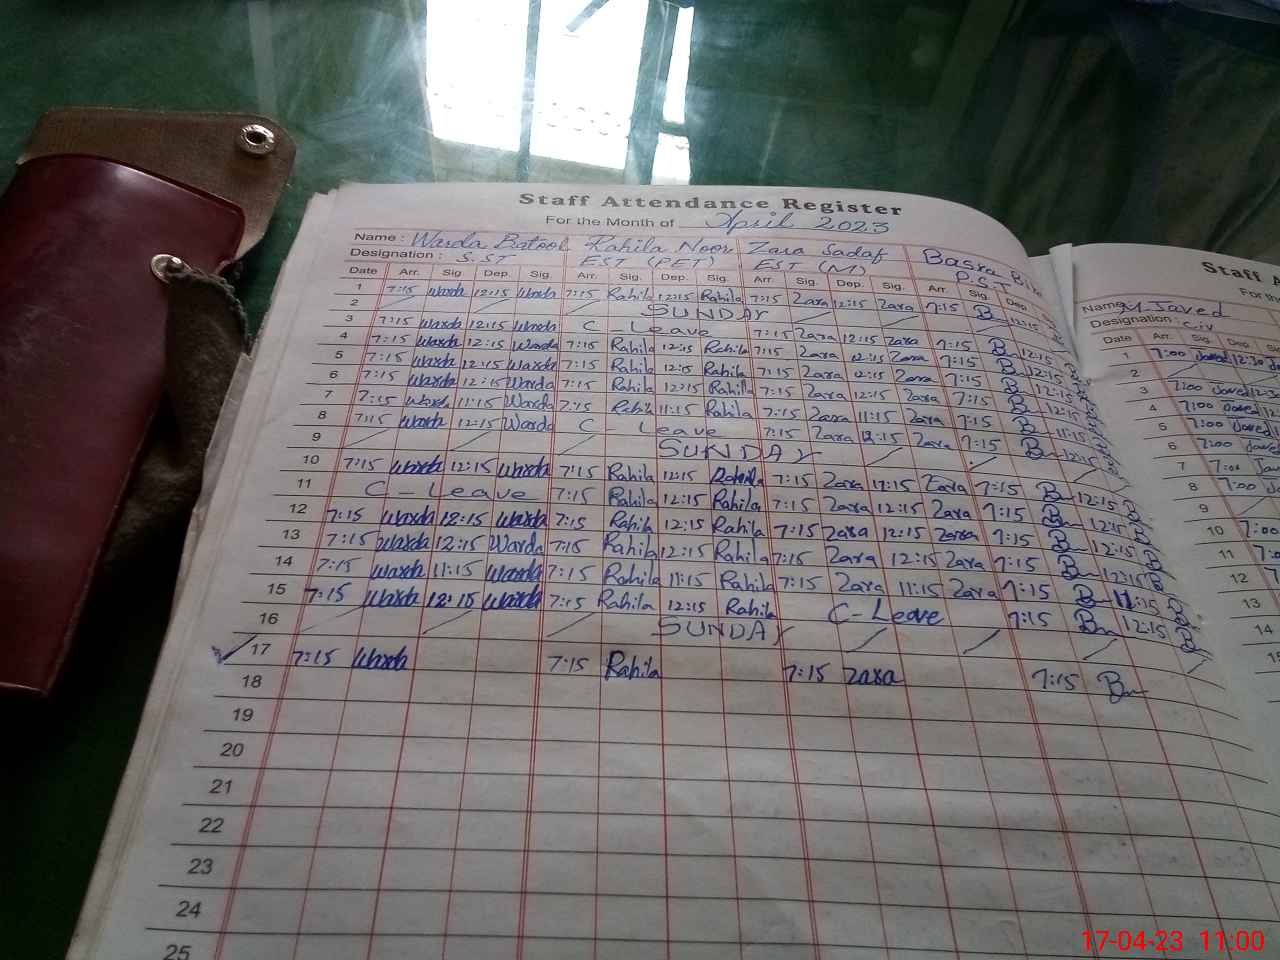 Staff Attendance Register
For the Month of April 2023
Name : Warda Batool Rahila Noor Zara Sadaf Basra Bibi
Designation : S.ST EST (PET) EST (M) P.S.T
Date Arr. Sig. Dep. Sig. Arr. Sig. Dep. Sig. Arr. Sig. Dep. Sig. Arr. Sig. Dep.
1 7:15 Warda 12:15 Warda 7:15 Rahila 12:15 Rahila 7:15 Zara 12:15 Zara 7:15 12:15
2 SUNDAY
3 7:15 Warda 12:15 Warda C-Leave 7:15 Zara 12:15 Zara 7:15 12:15
4 7:15 Warda 12:15 Warda 7:15 Rahila 12:15 Rahila 7:15 Zara 12:15 Zara 7:15 12:15
5 7:15 Warda 12:15 Warda 7:15 Rahila 12:15 Rahila 7:15 Zara 12:15 Zara 7:15 12:15
6 7:15 Warda 12:15 Warda 7:15 Rahila 12:15 Rahila 7:15 Zara 12:15 Zara 7:15 12:15
7 7:15 Warda 11:15 Warda 7:15 Rahila 11:15 Rahila 7:15 Zara 11:15 Zara 7:15 11:15
8 7:15 Warda 12:15 Warda C-Leave 7:15 Zara 12:15 Zara 7:15 12:15
9 SUNDAY
10 7:15 Warda 12:15 Warda 7:15 Rahila 12:15 Rahila 7:15 Zara 12:15 Zara 7:15 12:15
11 C-Leave 7:15 Rahila 12:15 Rahila 7:15 Zara 12:15 Zara 7:15 12:15
12 7:15 Warda 12:15 Warda 7:15 Rahila 12:15 Rahila 7:15 Zara 12:15 Zara 7:15 12:15
13 7:15 Warda 12:15 Warda 7:15 Rahila 12:15 Rahila 7:15 Zara 12:15 Zara 7:15 12:15
14 7:15 Warda 11:15 Warda 7:15 Rahila 11:15 Rahila 7:15 Zara 11:15 Zara 7:15 11:15
15 7:15 Warda 12:15 Warda 7:15 Rahila 12:15 Rahila C-Leave 7:15 12:15
16 SUNDAY
17 7:15 Warda 7:15 Rahila 7:15 Zara 7:15
18
19
20
21
22
23
24
25
Staff
Name M Javed
Designation :
Date Arr. Sig. Dep.
1 7:00 Javed 12:30
2
3 7:00 Javed
4 7:00 Javed
5 7:00 Javed
6 7:00 Javed
7 7:00
8 7:00
9
10 7:00
11
12
13
14
17-04-23 11:00